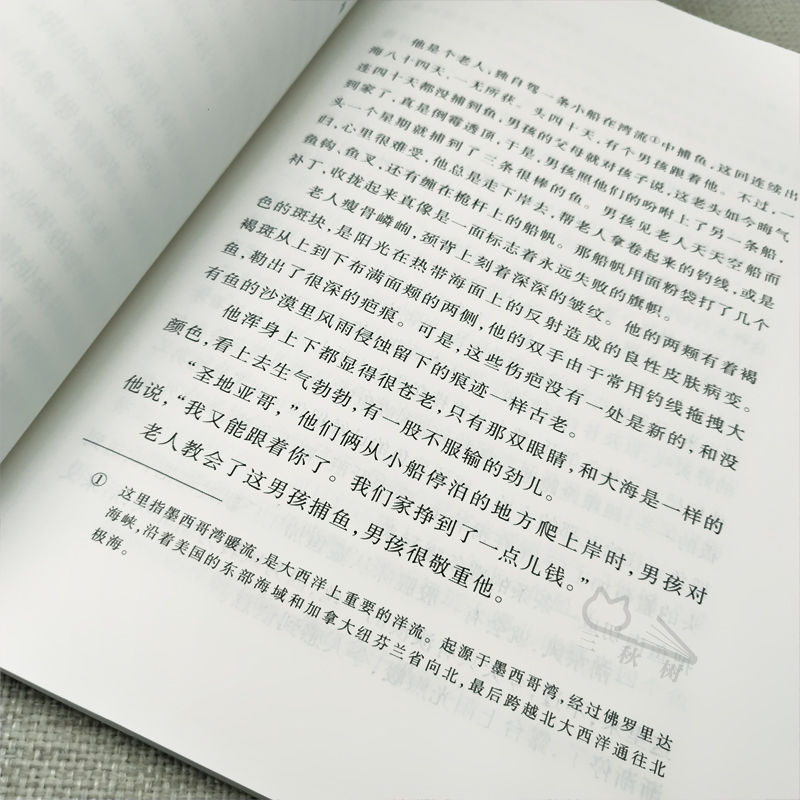 他是个老人，独自驾一条小船在湾流①中捕鱼，这回连续出
海八十四天，一无所获。头四十天，有个男孩跟着他。不过，一
连四十天都没捕到鱼，男孩的父母就对孩子说，这老头如今晦气
到家了，真是倒霉透顶，于是，男孩照他们的吩咐上了另一条船，
头一个星期就捕到了三条很棒的鱼。男孩见老人天天空船而
归，心里很难受，他总是走下岸去，帮老人拿卷起来的钓线，或是
鱼钩、鱼叉，还有缠在桅杆上的船帆。那船帆用面粉袋打了几个
补丁，收拢起来真像是一面标志着永远失败的旗帜。
老人瘦骨嶙峋，颈背上刻着深深的皱纹。他的两颊有着褐
色的斑块，是阳光在热带海面上的反射造成的良性皮肤病变。
褐斑从上到下布满面颊的两侧，他的双手由于常用钓线拖拽大
鱼，勒出了很深的疤痕。可是，这些伤疤没有一处是新的，和没
有鱼的沙漠里风雨侵蚀留下的痕迹一样古老。
他浑身上下都显得很苍老，只有那双眼睛，和大海是一样的
颜色，看上去生气勃勃，有一股不服输的劲儿。
“圣地亚哥，”他们俩从小船停泊的地方爬上岸时，男孩对
他说，“我又能跟着你了。我们家挣到了一点儿钱。”
老人教会了这男孩捕鱼，男孩很敬重他。
① 这里指墨西哥湾暖流，是大西洋上重要的洋流。起源于墨西哥湾，经过佛罗里达
海峡，沿着美国的东部海域和加拿大纽芬兰省向北，最后跨越北大西洋通往北
极海。
三秋树